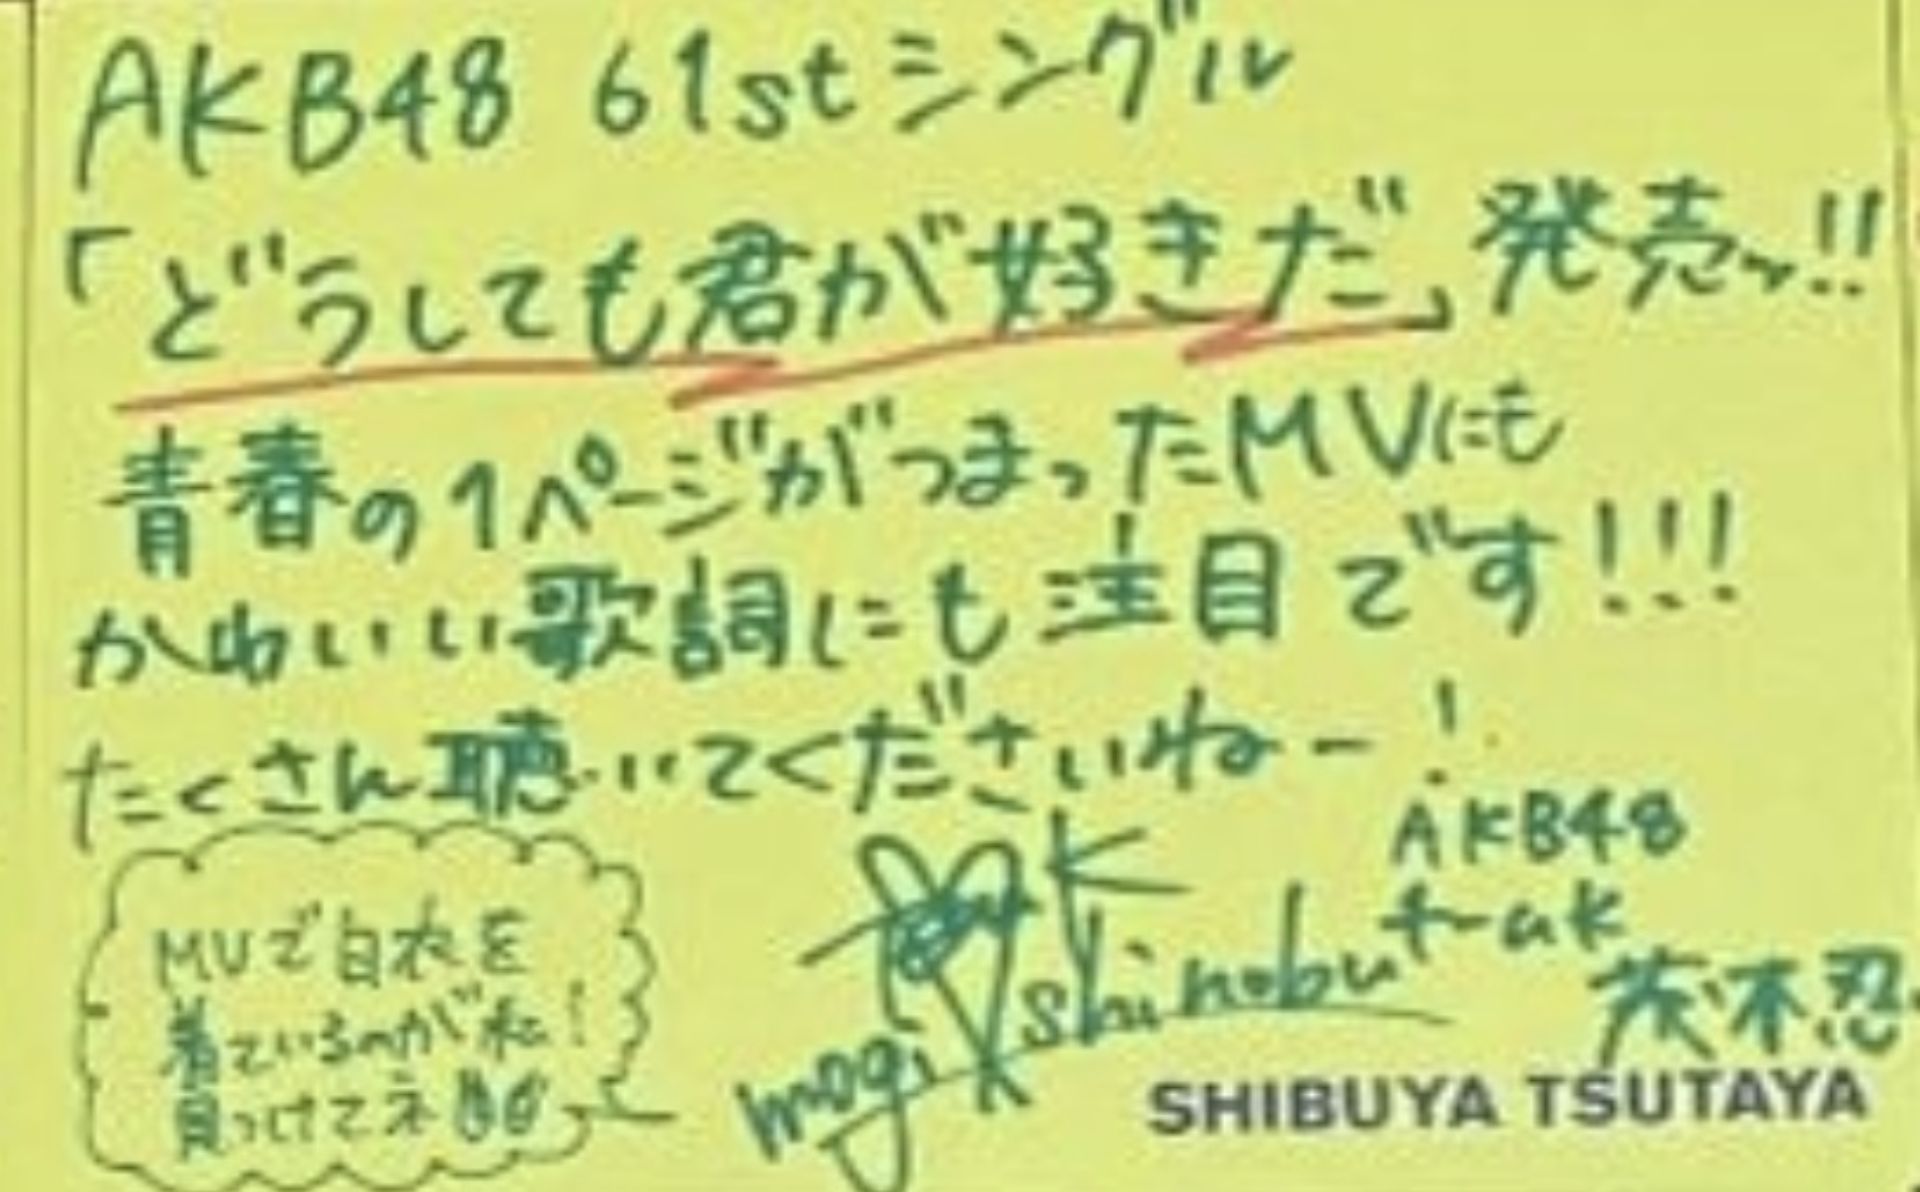 AKB48 61stシングル
「どうしても君が好きだ」発売ッ!!
青春の1ページがつまったMVにも
かわいい歌詞にも注目です!!!
たくさん聴いてくださいねー!
MVで白衣を
着ているのが私!
見つけてネ
AKB48
茂木忍
mogi shinobu
SHIBUYA TSUTAYA